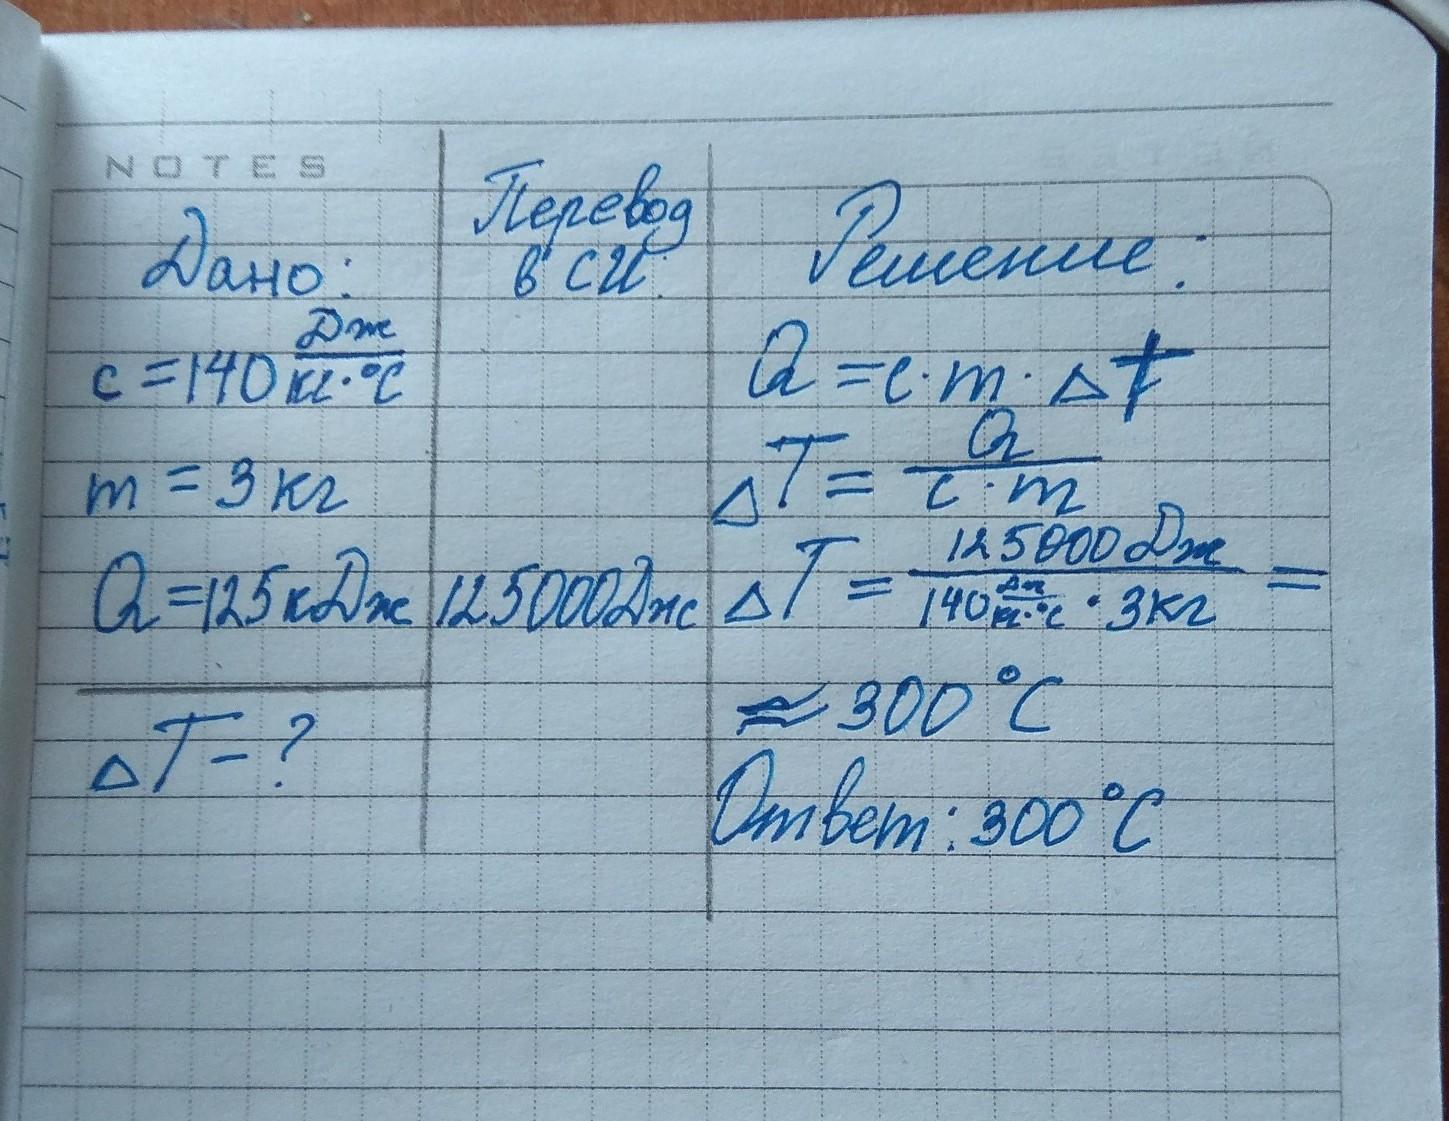 NOTES
Дано:
c = 140 Дж/кг·°C
m = 3 кг
Q = 125 кДж
ΔT - ?
Перевод
в СИ:
125000 Дж
Решение:
Q = c · m · Δt
ΔT = Q/c · m
ΔT = 125000 Дж/140 Дж/кг·°C · 3 кг =
≈ 300 °C
Ответ: 300 °C